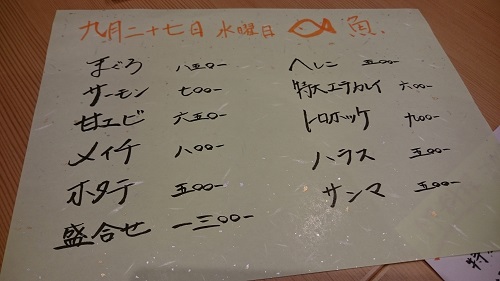 九月二十七日 水曜日 魚.
まぐろ 八五〇-
サーモン 七〇〇-
甘エビ 六五〇-
メイチ 八〇〇-
ホタテ 五〇〇-
盛合せ 一三〇〇-
へしこ 五〇〇-
特大エテカレイ 六〇〇-
トロホッケ 九〇〇-
ハラス 五〇〇-
サンマ 五〇〇-
特